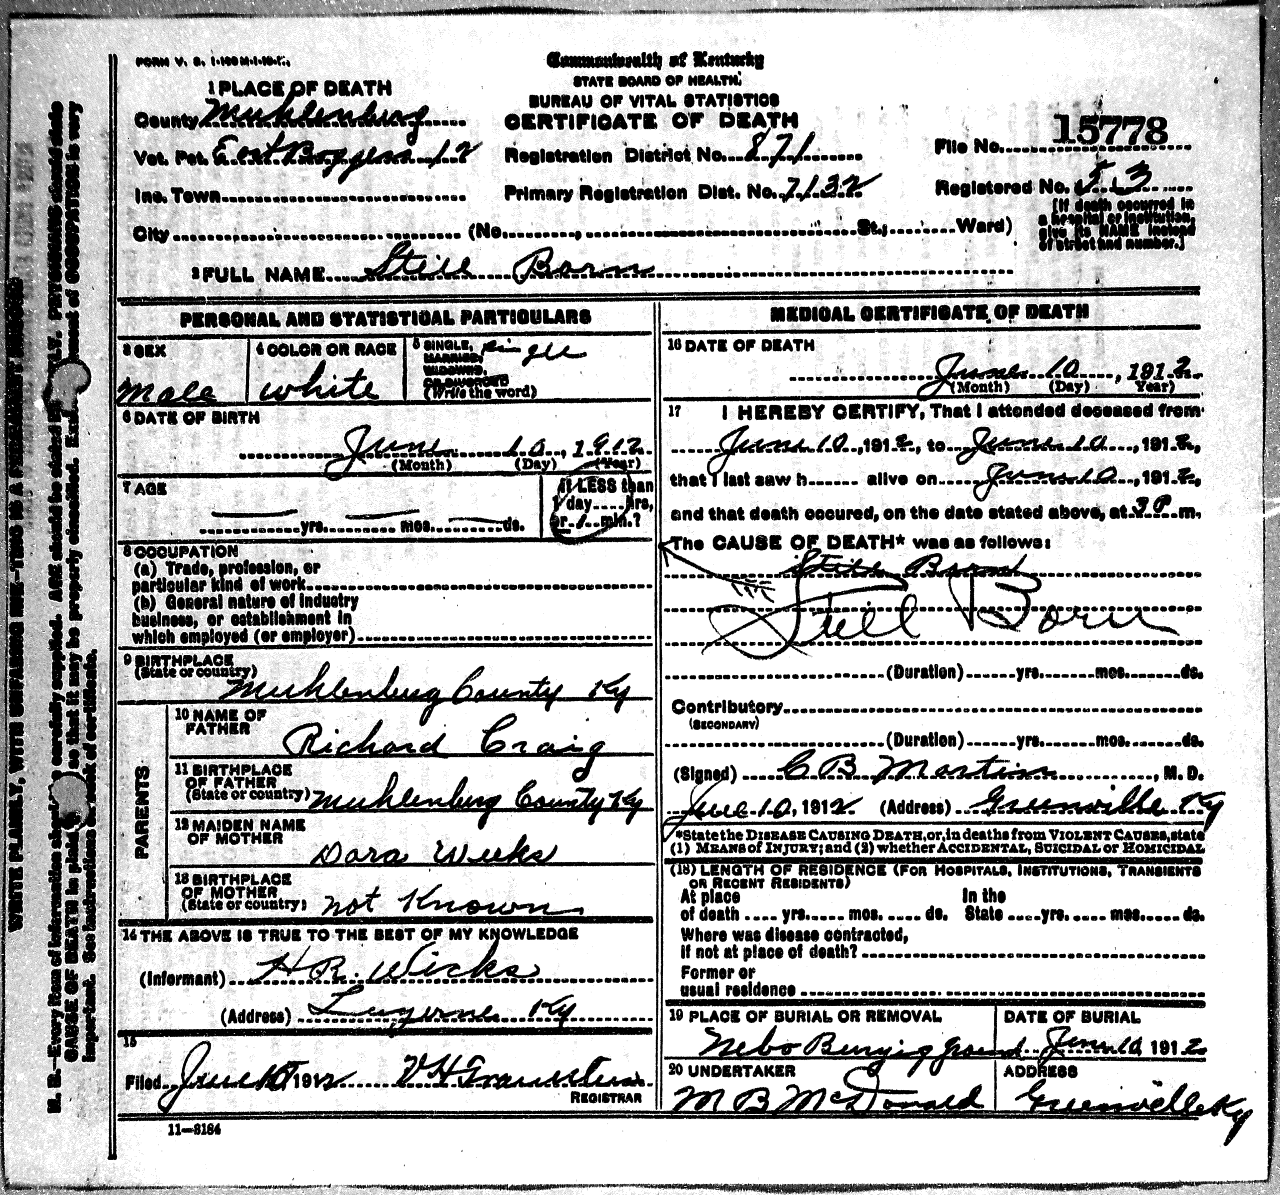 FORM V. S. 1-
Commonwealth of Kentucky
STATE BOARD OF HEALTH.
BUREAU OF VITAL STATISTICS
CERTIFICATE OF DEATH
1 PLACE OF DEATH
County Muhlenburg
Vot. Pct. East 12
Registration District No. 871
File No. 15778
Inc. Town
Primary Registration Dist. No. 7132
Registered No. 53
[If death occurred in
a hospital or institution,
give its NAME instead
of street and number.]
City (No. , St.; Ward)
2 FULL NAME Still Born
PERSONAL AND STATISTICAL PARTICULARS
3 SEX
Male
4 COLOR OR RACE
white
5 SINGLE,
MARRIED,
WIDOWED,
OR DIVORCED
(Write the word)
single
6 DATE OF BIRTH
June 10, 1912
(Month) (Day) (Year)
7 AGE
yrs. mos. ds.
If LESS than
1 day hrs.
or 1 min.?
8 OCCUPATION
(a) Trade, profession, or
particular kind of work
(b) General nature of industry
business, or establishment in
which employed (or employer)
9 BIRTHPLACE
(State or country)
Muhlenburg County Ky
PARENTS
10 NAME OF
FATHER
Richard Craig
11 BIRTHPLACE
OF FATHER
(State or country)
Muhlenburg County Ky
12 MAIDEN NAME
OF MOTHER
Dora Weeks
13 BIRTHPLACE
OF MOTHER
(State or country)
not Known
14 THE ABOVE IS TRUE TO THE BEST OF MY KNOWLEDGE
(Informant) H R. Wicks
(Address) Luzerne Ky
15
Filed June 1912
REGISTRAR
11-3184
MEDICAL CERTIFICATE OF DEATH
16 DATE OF DEATH
June 10, 1912
(Month) (Day) Year)
17 I HEREBY CERTIFY, That I attended deceased from
June 10, 1912, to June 10, 1912,
that I last saw h alive on June 10, 1912,
and that death occured, on the date stated above, at 3 P m.
The CAUSE OF DEATH* was as follows:
Still Born
Still Born
(Duration) yrs. mos. ds.
Contributory
(SECONDARY)
(Duration) yrs. mos. ds.
(Signed) C B Martin, M. D.
June 10, 1912 (Address) Greenville Ky
*State the DISEASE CAUSING DEATH, or, in deaths from VIOLENT CAUSES, state
(1) MEANS OF INJURY; and (2) whether ACCIDENTAL, SUICIDAL or HOMICIDAL
(18) LENGTH OF RESIDENCE (FOR HOSPITALS, INSTITUTIONS, TRANSIENTS
OR RECENT RESIDENTS)
At place
of death yrs. mos. ds.
In the
State yrs. mos. ds.
Where was disease contracted,
if not at place of death?
Former or
usual residence
19 PLACE OF BURIAL OR REMOVAL
Nebo Burying ground
DATE OF BURIAL
June 10, 1912
20 UNDERTAKER
M B McDonald
ADDRESS
Greenville Ky
WRITE PLAINLY, WITH UNFADING INK—THIS IS A PERMANENT RECORD
N. B.—Every item of information should be carefully supplied. AGE should be stated EXACTLY. PHYSICIANS should state
CAUSE OF DEATH in plain so that it may be properly classified. Exact statement of OCCUPATION is very
important. See instructions on back of certificate.